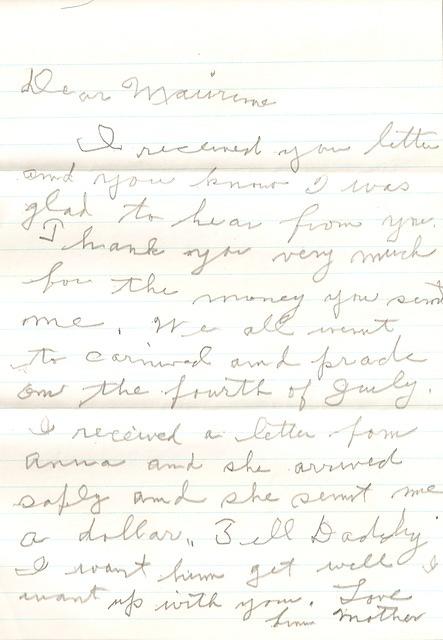 Dear Maurine
I received you letter
and you know I was
glad to hear from you.
Thank you very much
for the money you sent
me. We all went
to carnival and prade
on the fourth of July.
I received a letter fom
Anna and she arrived
safly and she sent me
a dollar. Tell Daddy
I want him get well I
want up with you. Love
him Mother